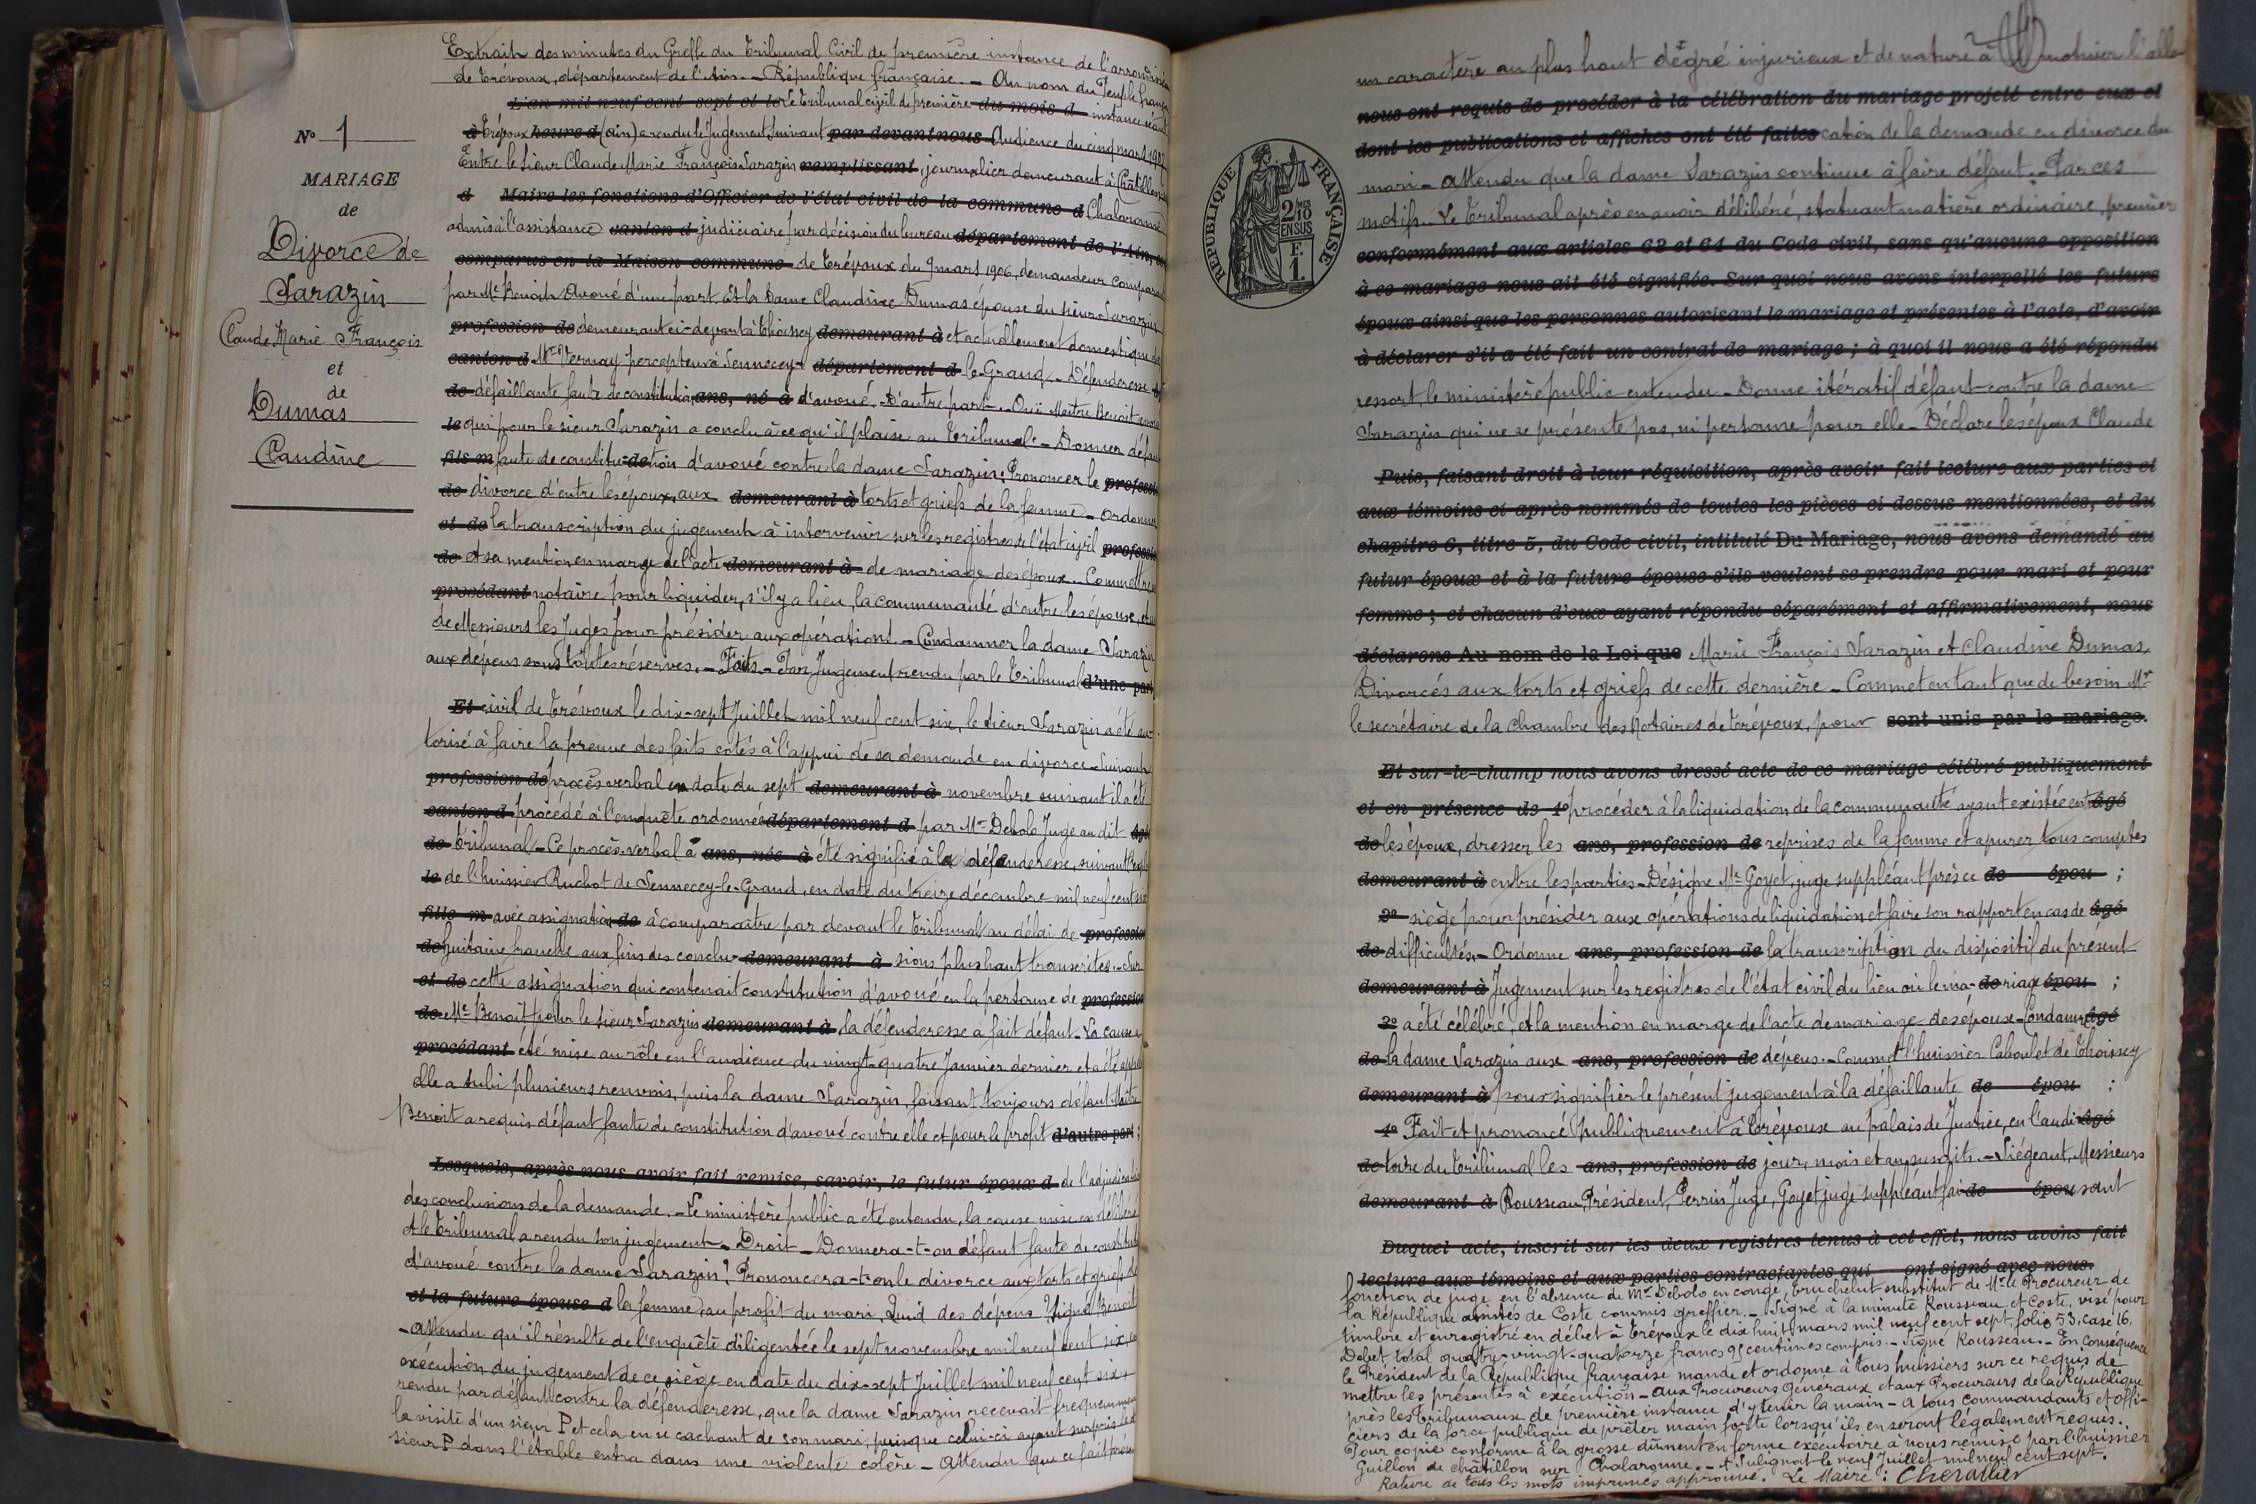 Extrait des minutes du Greffe du Tribunal Civil de première instance de l'arrondisse
de Trévoux, département de l'Ain. _ République française. _ Au nom du Peuple frança
L'an mil neuf cent sept et le Le Tribunal civil de première du mois d instance séant
à Trévoux heure d (Ain) a rendu le Jugement suivant par devant nous Audience du cinq mars 1907
Entre le Sieur Claude Marie François Sarazin remplissant, journalier demeurant à Châtillon
d Maire les fonctions d'Officier de l'état civil de la commune d Chalaronne
admis à l'assistance canton d judiciaire par décision du bureau département de l'Ain,
comparus en la Maison commune de Trévoux du 9 mars 1906, demandeur comparant
par Me Benoit Avoué d'une part Et la Dame Claudine Dumas épouse du sieur Sarazin
profession de demeurant ci-devant à Thoissey demeurant à et actuellement domestique
canton d Mr Vernay percepteur à Sennecey département d le-Grand. _ Défenderesse
de défaillante faute de constitution ans, né à d'avoué. _ D'autre part _. Ouï Maître Benoit
le qui pour le sieur Sarazin a conclu à ce qu'il plaise au Tribunal. _ Donner défaut
fils m faute de constitu- de tion d'avoué contre la dame Sarazin ; Prononcer le profession
de divorce d'entre les époux, aux demeurant à torts et griefs de la femme _ Ordonner
et de la transcription du jugement à intervenir sur les registres de l'état civil profession
de et sa mention en marge de l'acte demeurant à de mariage des époux _ Commettre
procédant notaire pour liquider, s'il y a lieu, la communauté d'entre les époux, et
de Messieurs les Juges pour présider aux opérations. _ Condamner la dame Sarazin
aux dépens sous toutes réserves. _ Faits _ Par Jugement rendu par le Tribunal d'une part
Et civil de Trévoux le dix-sept Juillet mil neuf cent six, le sieur Sarazin a été au-
torisé à faire la preuve des faits cotés à l'appui de sa demande en divorce _ Suivant
profession de procès verbal en date du sept demeurant à novembre suivant il a été
canton d procédé à l'enquête ordonnée département d par Mr Debolo Juge au dit âgé
de Tribunal _ Ce procès-verbal a ans, née à été signifié à la défenderesse, suivant
le de l'huissier Ruchot de Sennecey-le-Grand, en date du treize décembre mil neuf cent six
fille m avec assignation de à comparaître par devant le Tribunal au délai de profession
de huitaine franche aux fins des conclu- demeurant à sions plus haut transcrites. _ Sur
et de cette assignation qui contenait constitution d'avoué en la personne de profession
de Me Benoit pour le sieur Sarazin demeurant à la défenderesse a fait défaut _ La cause
procédant été mise au rôle en l'audience du vingt-quatre Janvier dernier et a été
elle a subi plusieurs renvois, puis la dame Sarazin, faisant toujours défaut Maître
Benoit a requis défaut faute de constitution d'avoué contre elle et pour le profit d'autre part ;
Lesquels, après nous avoir fait remise, savoir, le futur époux d de l'adjudication
des conclusions de la demande. _ Le ministère public a été entendu, la cause mise en délibéré
et le Tribunal a rendu son jugement _ Droit _ Donnera-t-on défaut faute de constitution
d'avoué contre la dame Sarazin ? Prononcera-t-on le divorce aux torts et griefs de
et la future épouse d la femme, au profit du mari. Quid des dépens ? Signé Benoit
_ Attendu qu'il résulte de l'enquête diligentée le sept novembre mil neuf cent six, en
exécution du jugement de ce siège en date du dix-sept Juillet mil neuf cent six,
rendu par défaut contre la défenderesse, que la dame Sarazin recevait fréquemment
la visite d'un sieur P et cela en se cachant de son mari, puisque celui-ci ayant surpris le d
sieur P dans l'étable entra dans une violente colère _ Attendu que ce fait
No 1
MARIAGE
de
Divorce de
Sarazin
Claude Marie François
et
de
Dumas
Claudine
un caractère au plus haut dégré injurieux et de nature à motiver l'allo
nous ont requis de procéder à la célébration du mariage projeté entre eux et
dont les publications et affiches ont été faites cation de la demande en divorce du
mari _ Attendu que la dame Sarazin continue à faire défaut. _ Par ces
motifs _ Le Tribunal après en avoir délibéré, statuant matière ordinaire, premier
conformément aux articles 63 et 64 du Code civil, sans qu'aucune opposition
à ce mariage nous ait été signifiée. Sur quoi nous avons interpellé les futurs
époux ainsi que les personnes autorisant le mariage et présentes à l'acte, d'avoir
à déclarer s'il a été fait un contrat de mariage ; à quoi il nous a été répondu
ressort, le ministère public entendu _ Donne itératif défaut contre la dame
Sarazin qui ne se présente pas, ni personne pour elle _ Déclare les époux Claude
Puis, faisant droit à leur réquisition, après avoir fait lecture aux parties et
aux témoins ci après nommés de toutes les pièces ci-dessus mentionnées, et du
chapitre 6, titre 5, du Code civil, intitulé Du Mariage, nous avons demandé au
futur époux et à la future épouse s'ils veulent se prendre pour mari et pour
femme ; et chacun d'eux ayant répondu séparément et affirmativement, nous
déclarons Au nom de la Loi que Marie François Sarazin et Claudine Dumas,
Divorcés aux torts et griefs de cette dernière _ Commet en tant que de besoin Mr
le secrétaire de la chambre des Notaires de Trévoux, pour sont unis par le mariage.
Et sur-le-champ nous avons dressé acte de ce mariage célébré publiquement
et en présence de 1o procéder à la liquidation de la communauté ayant existée ent âgé
de les époux, dresser les ans, profession de reprises de la femme et apurer tous comptes
demeurant à entre les parties _ Désigne Mr Goyet, juge suppléant près ce de épou ;
2o siège pour présider aux opérations de liquidation et faire son rapport en cas de âgé
de difficultés _ Ordonne ans, profession de la transcription du dispositif du présent
demeurant à Jugement sur les registres de l'état civil du lieu où le ma- de riage épou ;
3o a été célébré, et la mention en marge de l'acte de mariage des époux _ Condamne âgé
de la dame Sarazin aux ans, profession de dépens. _ Commet l'huissier Caboulet de Thoissey
demeurant à pour signifier le présent jugement à la défaillante de épou ;
4o Fait et prononcé publiquement à Trévoux au palais de Justice, en l'audi âgé
de toire du Tribunal les ans, profession de jour, mois et an susdits. _ Siégeant, Messieurs
demeurant à Rousseau, Président, Perrin Juge, Goyet juge suppléant fai de épou sant
Duquel acte, inscrit sur les deux registres tenus à cet effet, nous avons fait
lecture aux témoins et aux parties contractantes qui ont signé avec nous.
fonction de juge en l'absence de Mr Debolo en congé, Bruchelut substitut de Mr le Procureur de
la République assistés de Coste commis greffier. _ Signé à la minute Rousseau et Coste, visé pour
timbre et enregistré en débet à Trévoux le dix huit mars mil neuf cent sept, folio 53, case 16.
Debet total quatre-vingt-quatorze francs 95 centimes compris. _ Signé Rousseau. _ En conséquence
le Président de la République française mande et ordonne à tous huissiers sur ce requis de
mettre les présentes à exécution _ Aux Procureurs Généraux et aux Procureurs de la République
près les Tribunaux de première instance d'y tenir la main _ A tous commandants et offi-
ciers de la force publique de prêter main forte lorsqu'ils en seront légalement requis.
Pour copie conforme à la grosse dûment en forme exécutoire à nous remise par l'huissier
Guillon de Châtillon sur Chalaronne. _ A Sulignat le neuf Juillet mil neuf cent sept.
Rature de tous les mots imprimés approuvé. Le Maire : Chevallier
RÉPUBLIQUE FRANÇAISE
2/10
EN SUS
F.
1.